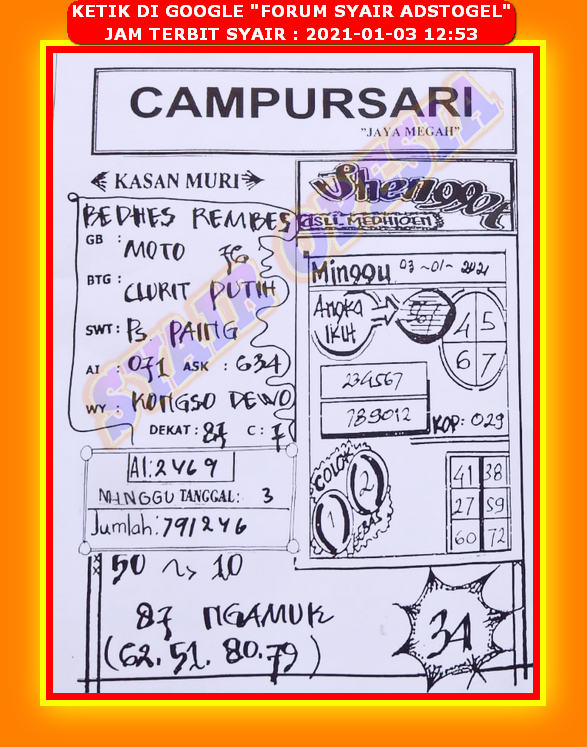 KETIK DI GOOGLE "FORUM SYAIR ADSTOGEL"
JAM TERBIT SYAIR : 2021-01-03 12:53
CAMPURSARI
"JAYA MEGAH"
KASAN MURI
BEDHES REMBES
GB : MOTO
BTG : CLURIT PUTIH
SWT : Ps. PAING
AI : 071 ASK : 634
WY : KONGSO DEWO
DEKAT : 87 C : 7
AI: 2469
MINGGU TANGGAL: 3
Jumlah: 791246
50 ~> 10
87 NGAMUK
(62. 51. 80. 79)
Shenggot
ASLI MEDHIOEN
Minggu 03-01-2021
Angka
IKUT
567
4 5
6 7
234567
789012
KOP: 029
COLOK
1 2
BEBAS
41 38
27 59
60 72
34
SYAIR OPESIA